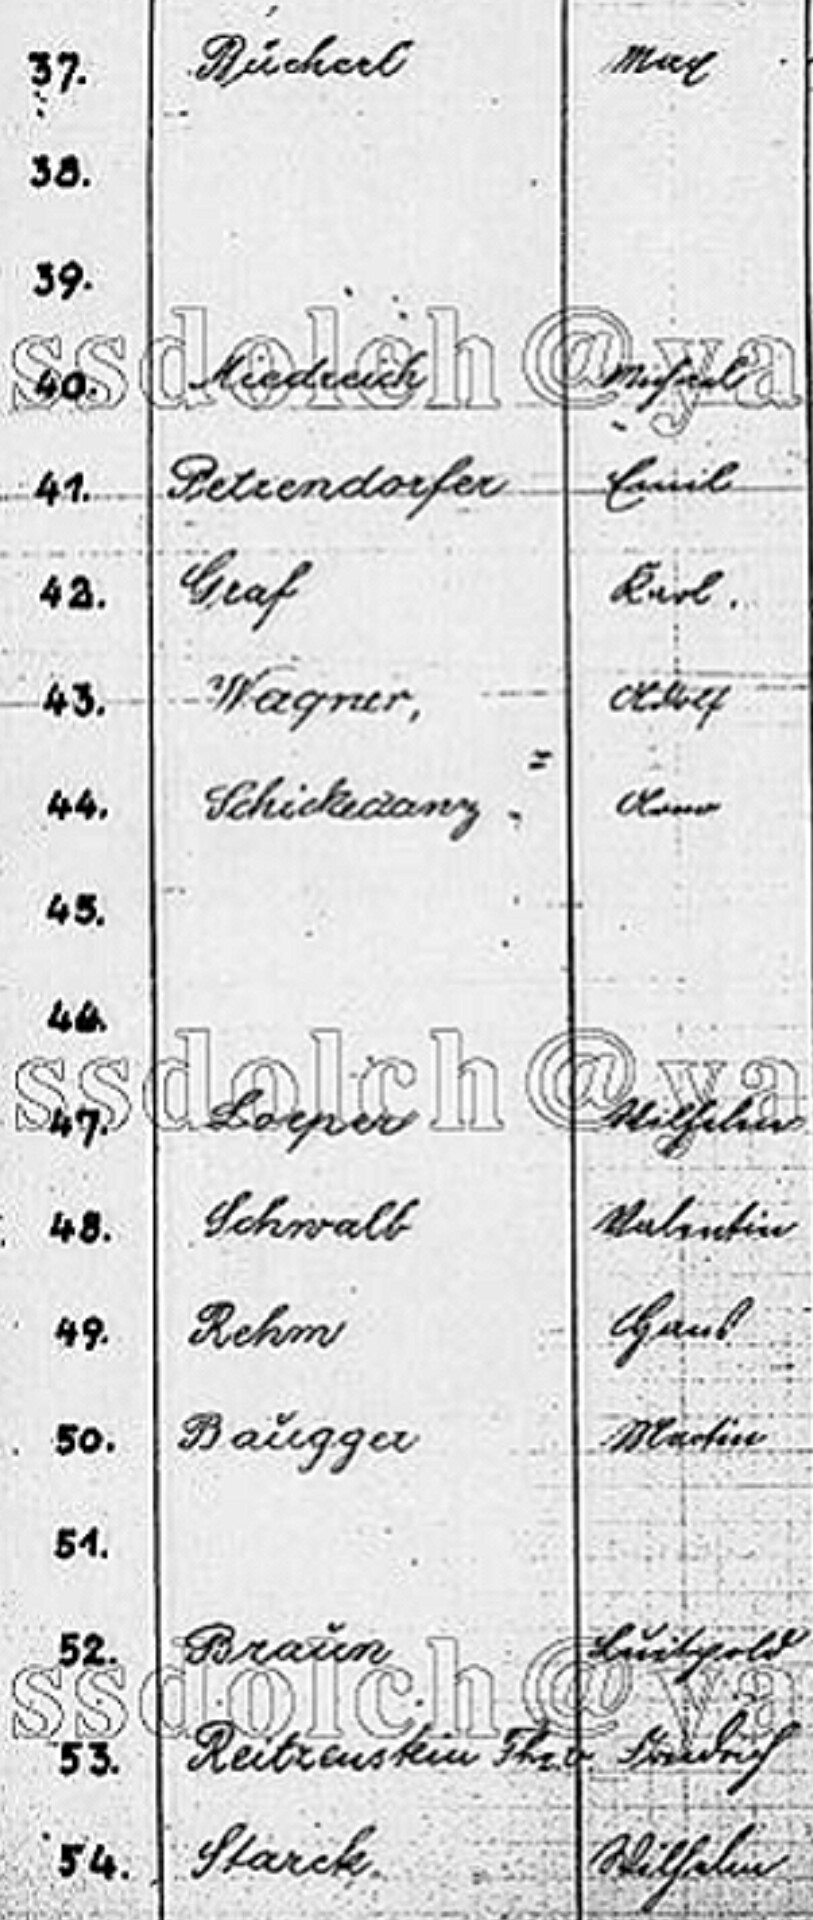 37. Bücherl Max
38.
39.
ssdolch@ya
40. Miedreich Michael
41. Petzendorfer Emil
42. Graf Karl.
43. Wagner, Adolf
44. Schickedanz Arno
45.
46.
ssdolch@ya
47. Loeper Wilhelm
48. Schwalb Valentin
49. Rehm Hans
50. Baŭgger Martin
51.
52. Braŭn Lŭitpold
ssdolch@ya
53. Reitzenstein Frh. v. Friedrich
54. Starck Wilhelm